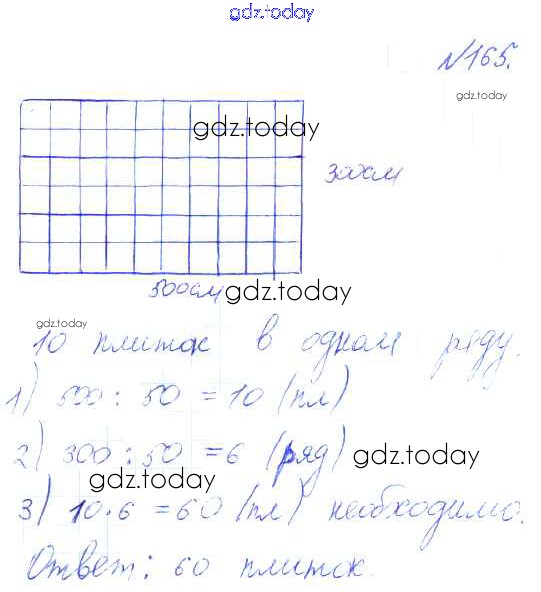 gdz.today
№165.
gdz.today
gdz.today
300см
500см gdz.today
gdz.today
10 плиток в одном ряду.
1) 500 : 50 = 10 (пл)
2) 300 : 50 = 6 (ряд) gdz.today
gdz.today
3) 10·6 = 60 (пл) необходимо.
Ответ: 60 плиток.